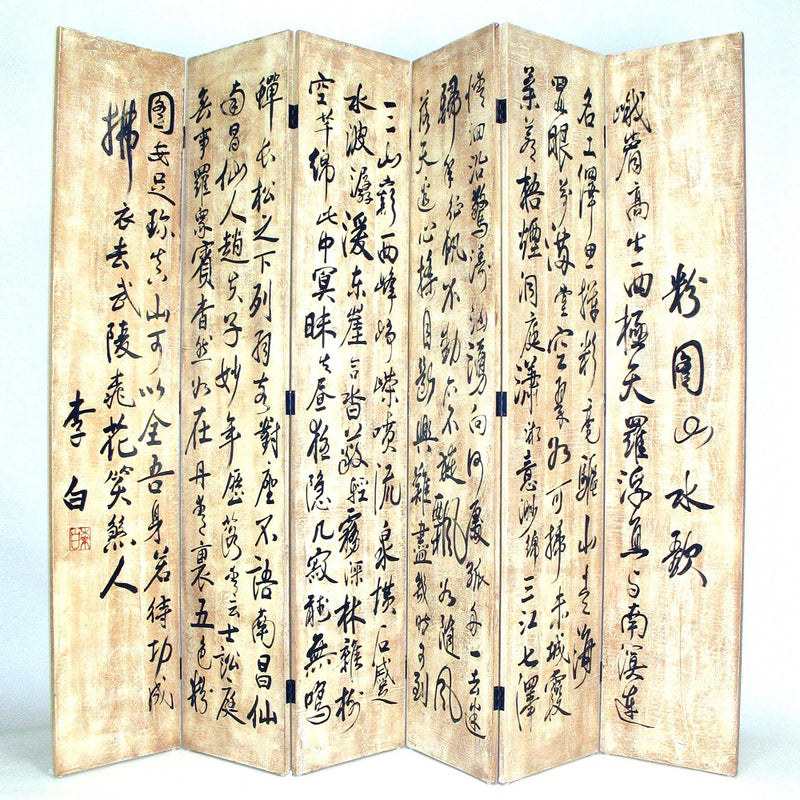 粉图山水歌
峨眉高出西極天羅浮直与南溟连
名工繹思揮彩毫驅山走海
置眼前满堂空翠如可掃赤城霞
氣蒼梧煙洞庭瀟湘意渺綿三江七澤
情洄沿驚濤洶湧向何處孤舟一去迷
歸年征帆不動亦不旋飄如隨風
落天邊心搖目斷興難盡幾時可到
三山巔西峰崢嶸噴流泉横石蹙
水波潺湲東崖合沓蔽輕霧深林雜樹
空芊綿此中冥昧失晝夜隱几寂聽無鳴
蟬長松之下列羽客對座不語南昌仙
南昌仙人趙夫子妙年歷落青云士訟庭
無事羅衆賓杳然如在丹青裏五色粉
图安足珍真山可以全吾身若待功成
拂衣去武陵桃花笑煞人
李白